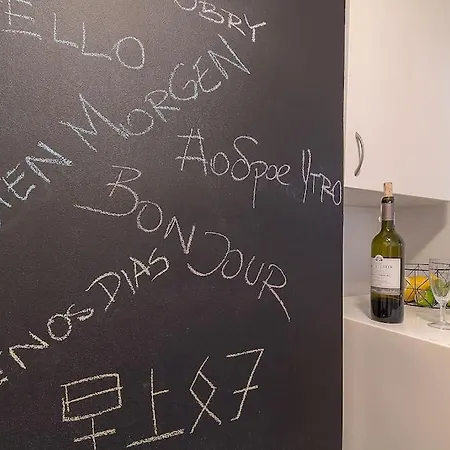 ELLO
OBRY
TEN MORGEN
Доброе Утро
BONJOUR
ENOS DIAS
早上好